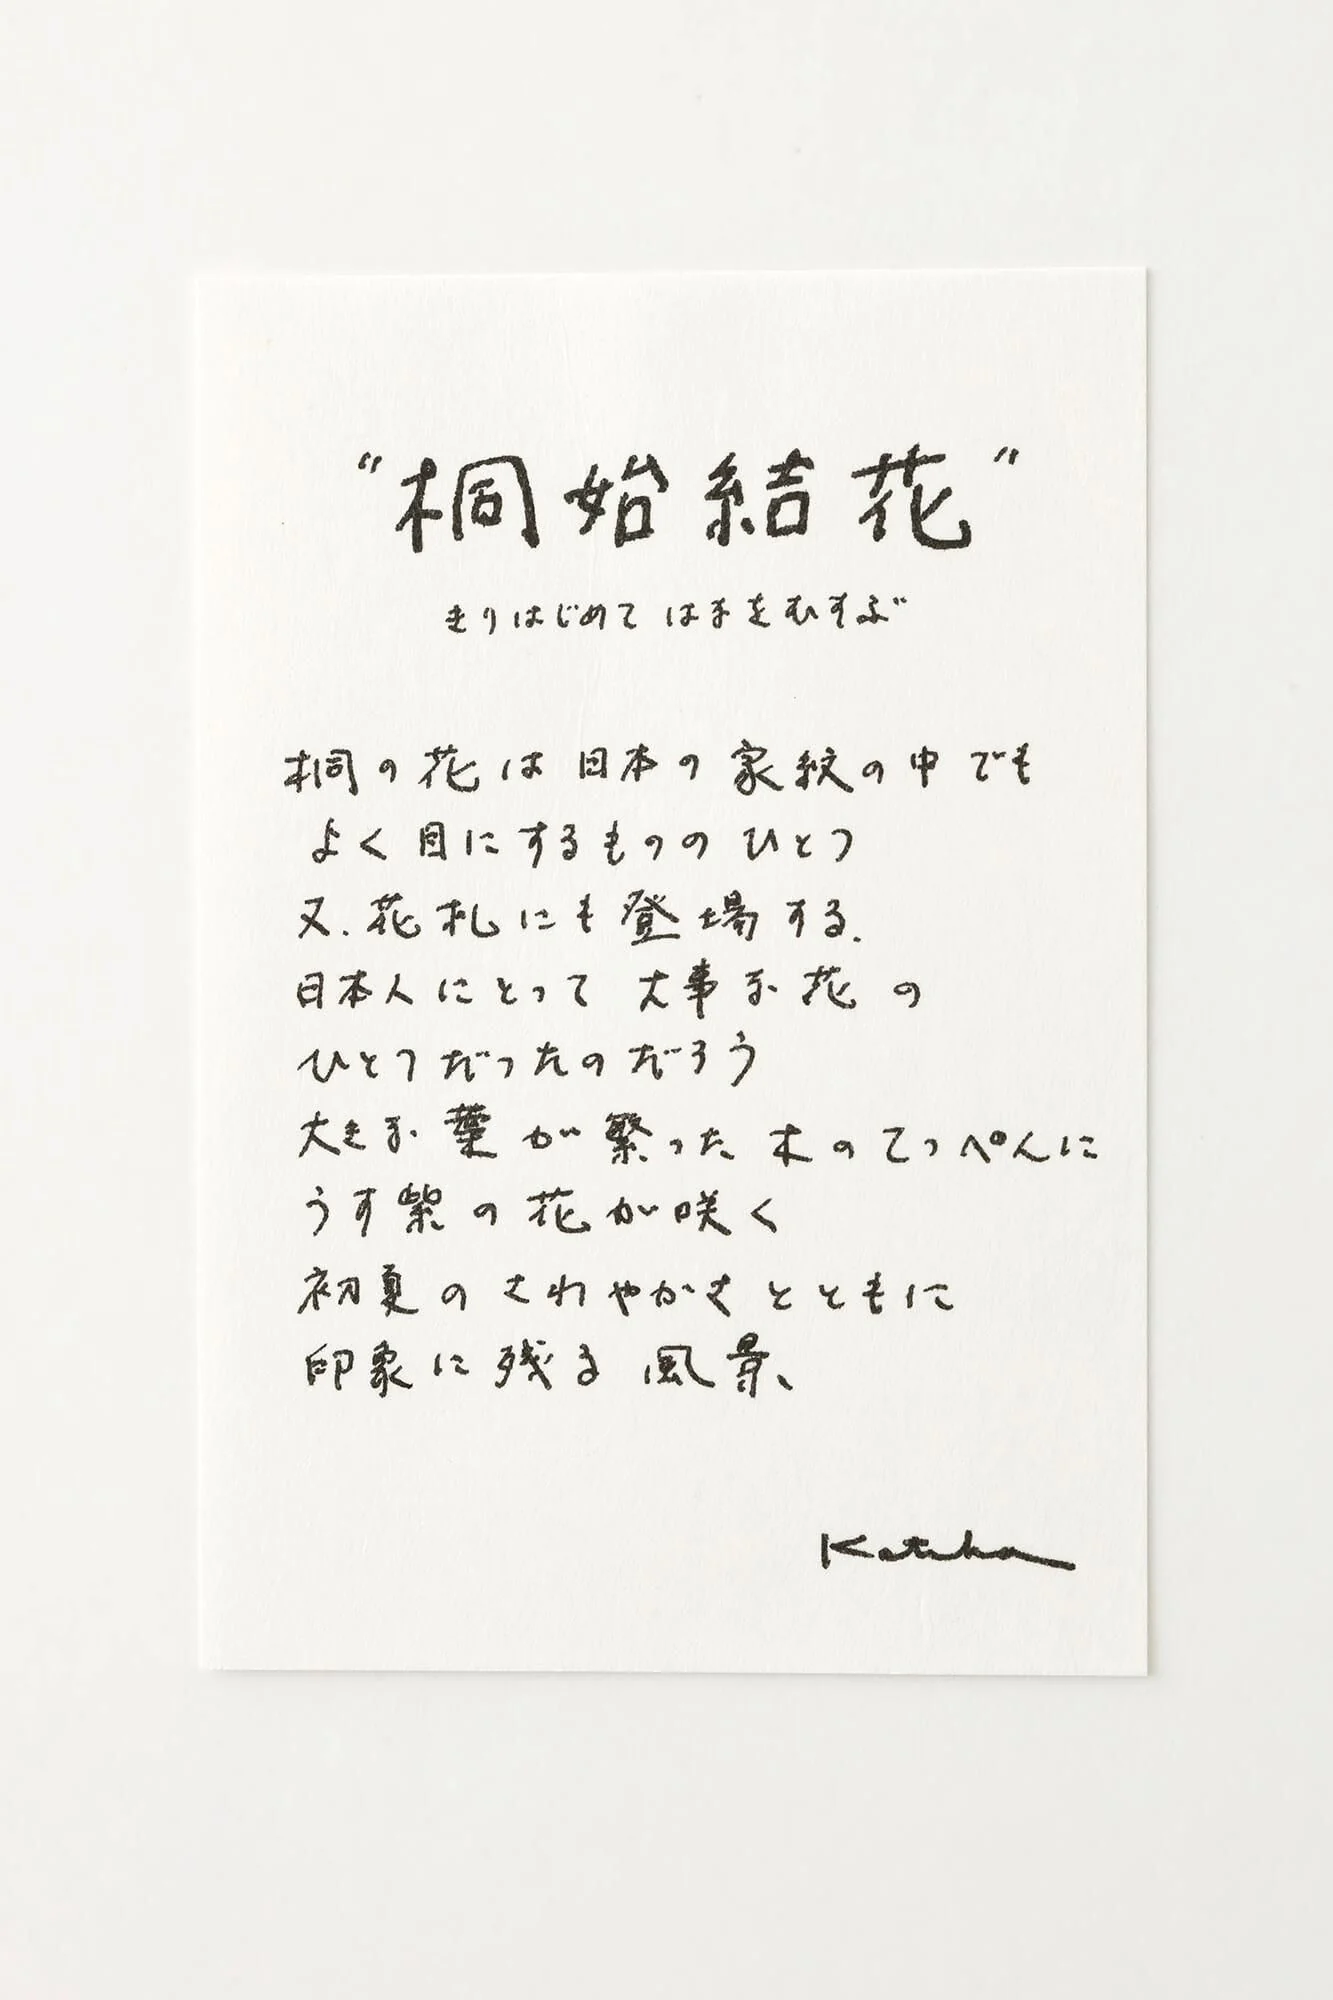 "桐始結花"
きりはじめて はなをむすぶ
桐の花は日本の家紋の中でも
よく目にするもののひとつ
又.花札にも登場する.
日本人にとって 大事な花の
ひとつだったのだろう
大きな葉が繁った木のてっぺんに
うす紫の花が咲く
初夏のさわやかさとともに
印象に残る風景、
Katakata